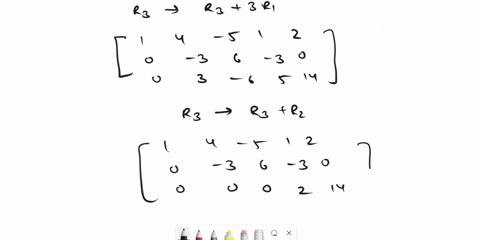 R3 → R3 + 3R1
1 4 -5 1 2
0 -3 6 -3 0
0 3 -6 5 14
R3 → R3 + R2
1 4 -5 1 2
0 -3 6 -3 0
0 0 0 2 14